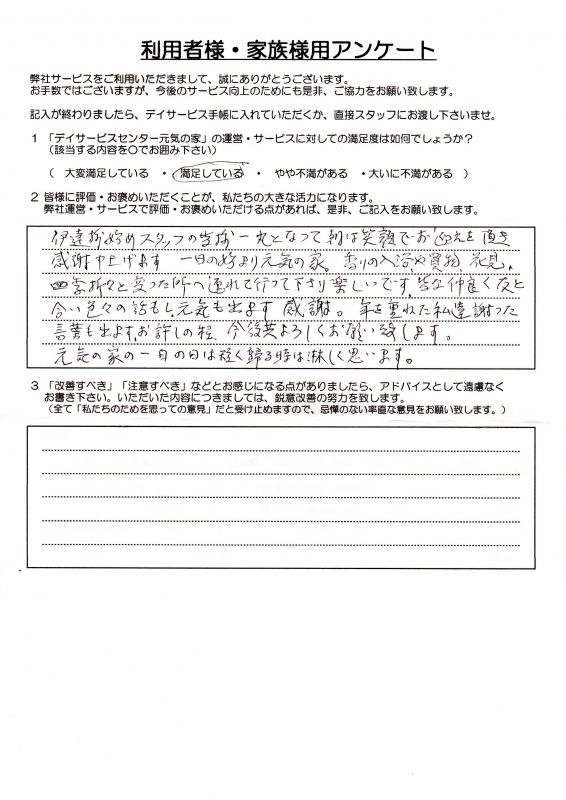 利用者様・家族様用アンケート
弊社サービスをご利用いただきまして、誠にありがとうございます。
お手数ではございますが、今後のサービス向上のためにも是非、ご協力をお願い致します。
記入が終わりましたら、デイサービス手帳に入れていただくか、直接スタッフにお渡し下さいませ。
1 「デイサービスセンター元気の家」の運営・サービスに対しての満足度は如何でしょうか?
(該当する内容を〇でお囲み下さい)
( 大変満足している ・ 満足している ・ やや不満がある ・大いに不満がある )
2 皆様に評価・お褒めいただくことが、私たちの大きな活力になります。
弊社運営・サービスで評価・お褒めいただける点があれば、是非、ご記入をお願い致します。
伊達様始めスタッフの皆様一丸となって朝は笑顔でお迎えを頂き
感謝申上げます 一日の始より元気の家。香りの入浴や買物、花見、
四季折々と変った所へ連れて行って下さり楽しいです。皆な仲良く友と
合い色々の話もし元気も出ます 感謝。年を重ねた私達謝った
言葉も出ます。お許しの程、今後共よろしくお願い致します。
元気の家の一日の日は短く帰る時は淋しく思います。
3 「改善すべき」「注意すべき」などとお感じになる点がありましたら、アドバイスとして遠慮なく
お書き下さい。いただいた内容につきましては、鋭意改善の努力を致します。
(全て「私たちのためを思っての意見」だと受け止めますので、忌憚のない率直な意見をお願い致します。)